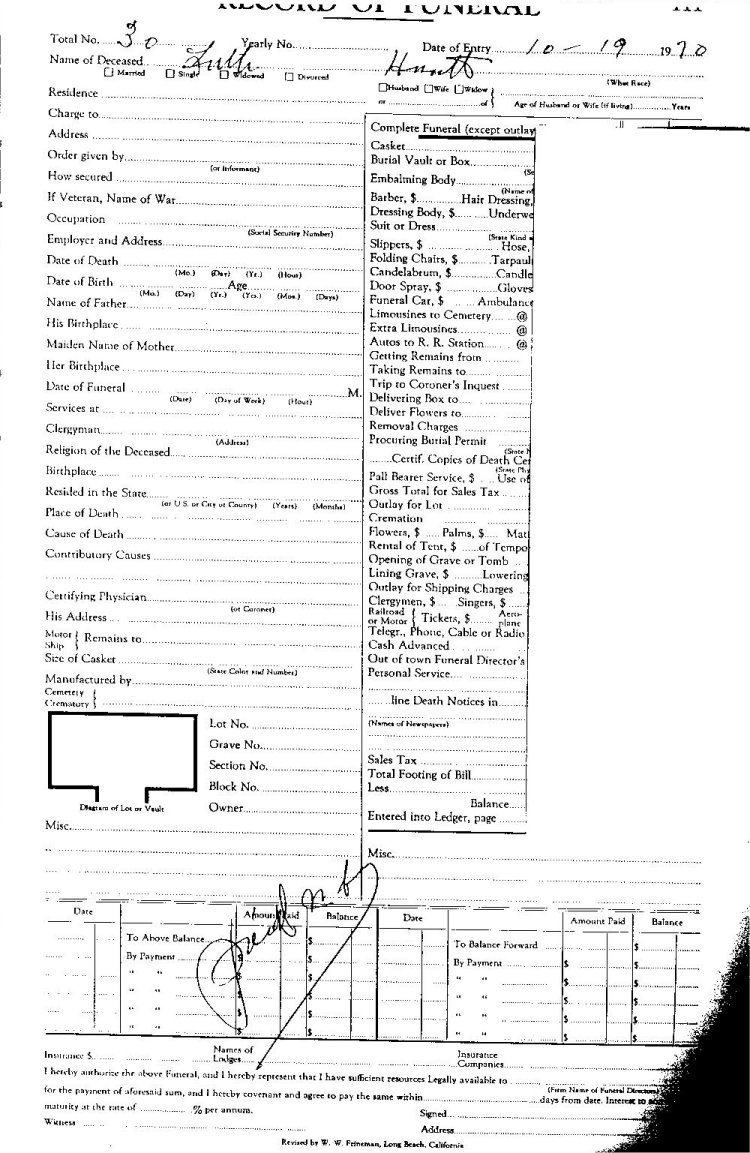 RECORD OF FUNERAL
Total No. 30 Yearly No. Date of Entry 10-19 1970
Name of Deceased
Married Single Widowed Divorced
Husband Wife Widow
or of
(What Race)
Age of Husband or Wife (if living) Years
Residence
Charge to
Address
Order given by
(or Informant)
How secured
If Veteran, Name of War
Occupation
(Social Security Number)
Employer and Address
Date of Death
(Mo.) (Day) (Yr.) (Hour)
Date of Birth Age
(Mo.) (Day) (Yr.) (Yrs.) (Mos.) (Days)
Name of Father
His Birthplace
Maiden Name of Mother
Her Birthplace
Date of Funeral M.
(Date) (Day of Week) (Hour)
Services at
Clergyman
(Address)
Religion of the Deceased
Birthplace
Resided in the State
(or U.S. or City or County) (Years) (Months)
Place of Death
Cause of Death
Contributory Causes
Certifying Physician
(or Coroner)
His Address
Motor
Ship
Remains to
Size of Casket
(State Color and Number)
Manufactured by
Cemetery
Crematory
Lot No.
Grave No.
Section No.
Block No.
Owner
Diagram of Lot or Vault
Misc.
Complete Funeral (except outlay
Casket
Burial Vault or Box
(Se
Embalming Body
(Name of
Barber, $ Hair Dressing,
Dressing Body, $ Underwe
Suit or Dress
(State Kind
Slippers, $ Hose,
Folding Chairs, $ Tarpaul
Candelabrum, $ Candle
Door Spray, $ Gloves
Funeral Car, $ Ambulance
Limousines to Cemetery @
Extra Limousines @
Autos to R. R. Station @
Getting Remains from
Taking Remains to
Trip to Coroner's Inquest
Delivering Box to
Deliver Flowers to
Removal Charges
Procuring Burial Permit
(State
Certif. Copies of Death Cer
(State Phy
Pall Bearer Service, $ Use of
Gross Total for Sales Tax
Outlay for Lot
Cremation
Flowers, $ Palms, $ Mat
Rental of Tent, $ of Tempo
Opening of Grave or Tomb
Lining Grave, $ Lowering
Outlay for Shipping Charges
Clergymen, $ Singers, $
Railroad
or Motor
Tickets, $
Aero-
plane
Telegr., Phone, Cable or Radio
Cash Advanced
Out of town Funeral Director's
Personal Service
line Death Notices in
(Names of Newspapers)
Sales Tax
Total Footing of Bill
Less
Balance
Entered into Ledger, page
Misc.
Date Amount Paid Balance Date Amount Paid Balance
To Above Balance $ To Balance Forward $
By Payment $ $ By Payment $ $
" " $ $ " " $ $
" " $ $ " " $ $
" " $ $ " " $ $
" " $ $ " " $ $
Insurance $ Names of
Lodges
Insurance
Companies
I hereby authorize the above Funeral, and I hereby represent that I have sufficient resources Legally available to
(Firm Name of Funeral Directors)
for the payment of aforesaid sum, and I hereby covenant and agree to pay the same within days from date. Interest to
maturity at the rate of % per annum. Signed
Witness Address
Revised by W. W. Feineman, Long Beach, California